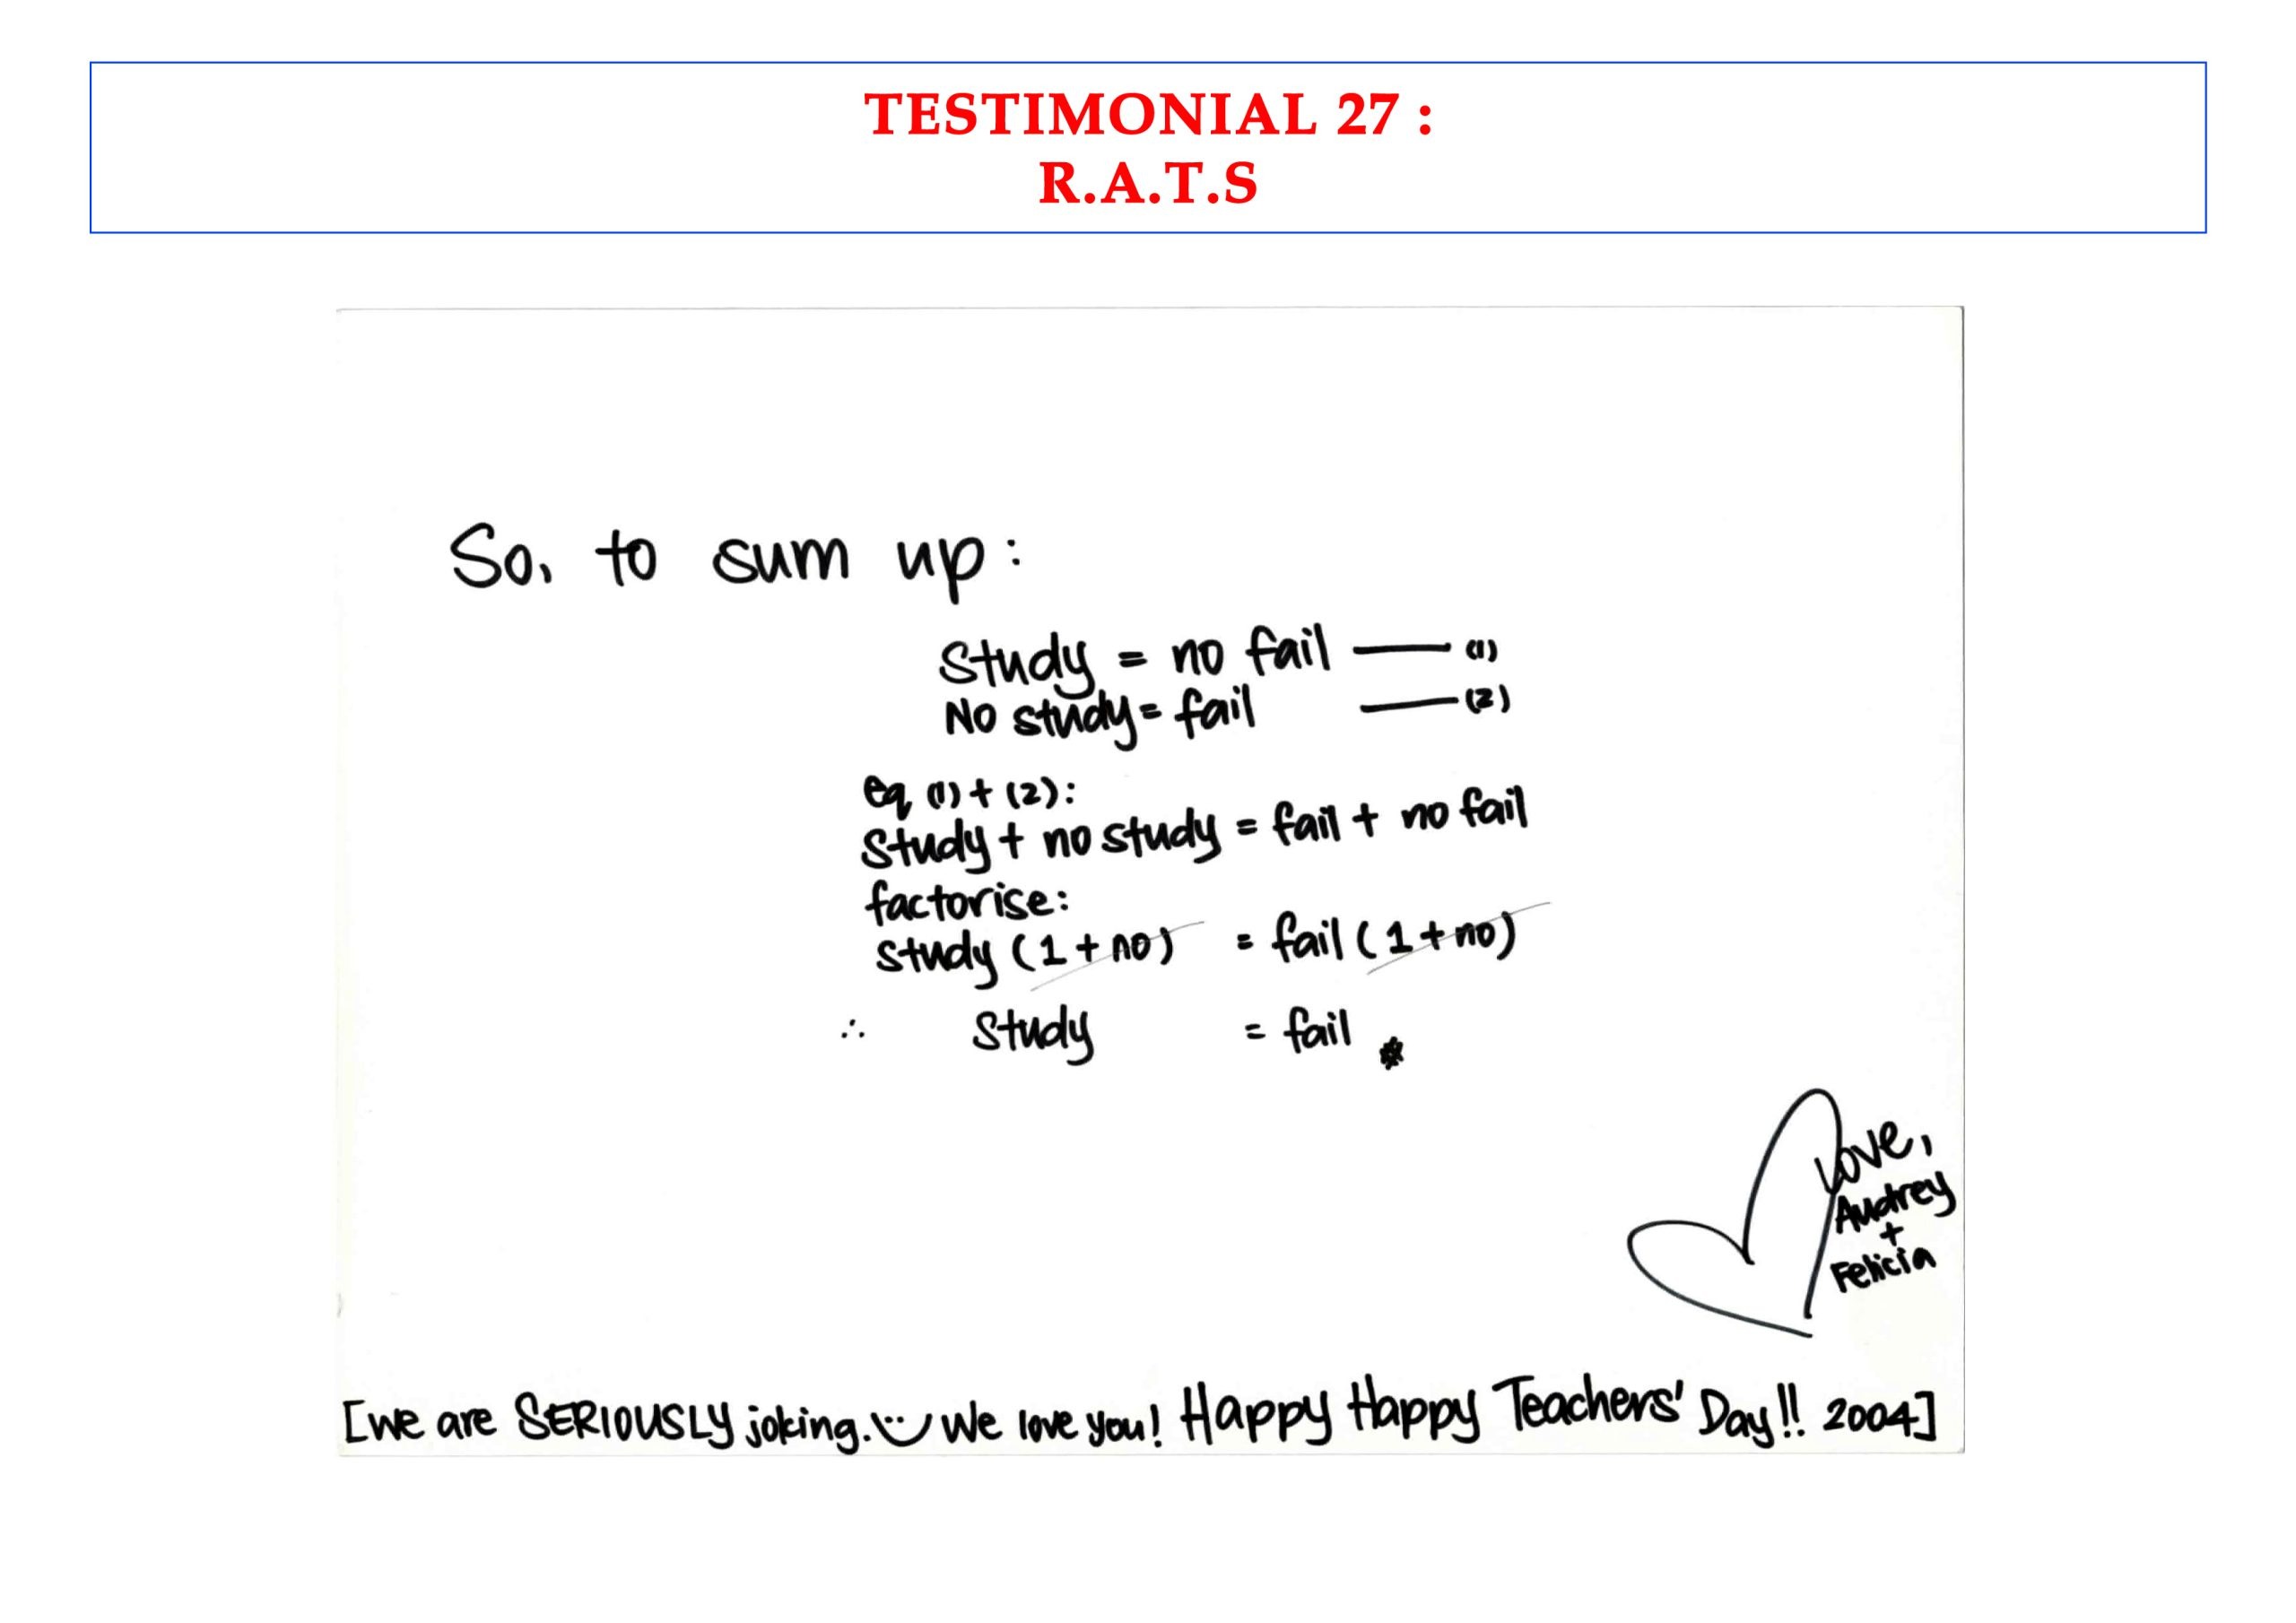 TESTIMONIAL 27 :
R.A.T.S
So, to sum up :
Study = no fail —— (1)
No study = fail —— (2)
eq (1) + (2):
Study + no study = fail + no fail
factorise:
study (1 + no) = fail (1 + no)
∴ Study = fail *
Love,
Audrey
+
Felicia
[we are SERIOUSLY joking. We love you! Happy Happy Teachers' Day!! 2004]